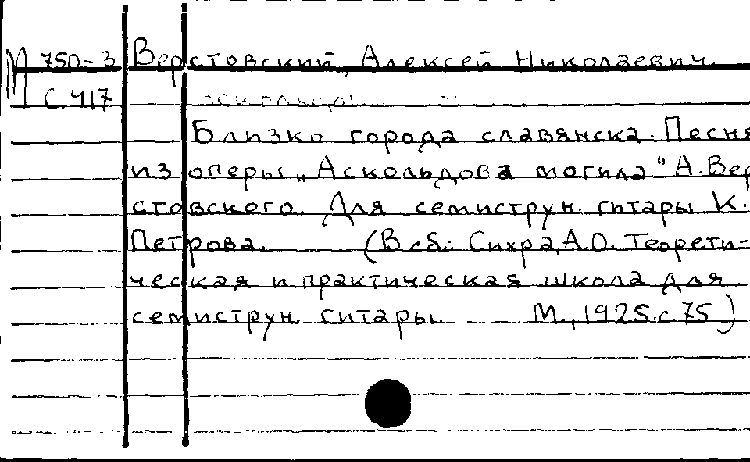 М 750-3 Верстовский, Алексей Николаевич.
С.417
Близко города славянска. Песня
из оперы „Аскольдова могила" А. Вер
стовского. Для семиструн. гитары К.
Петрова. (В сб: Сихра, А.О. Теорети-
ческая и практическая школа для
семиструн. гитары. М., 1925. с. 75)